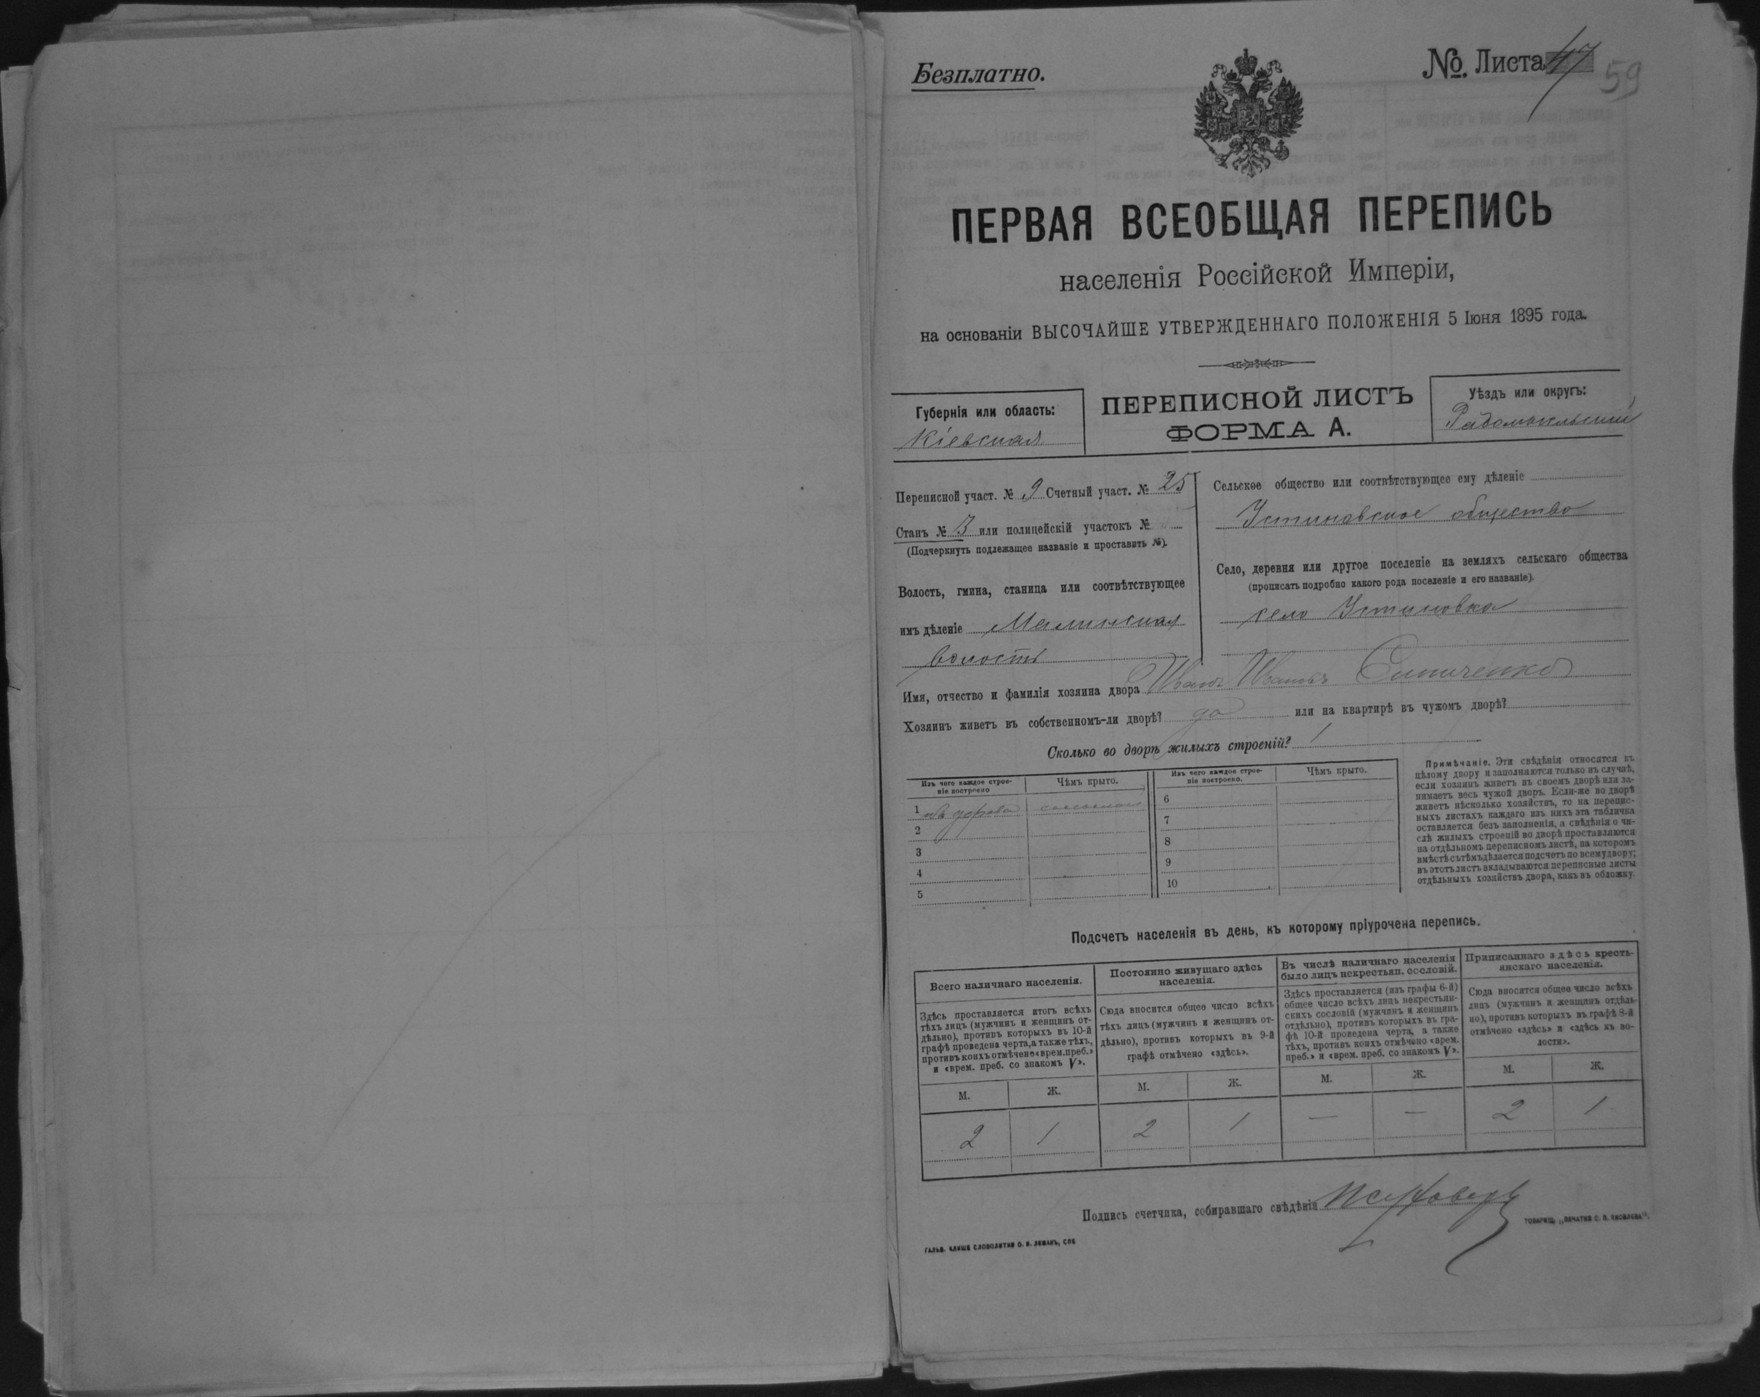 Безплатно.
№. Листа 47
59
ПЕРВАЯ ВСЕОБЩАЯ ПЕРЕПИСЬ
населенія Россійской Имперіи,
на основаніи ВЫСОЧАЙШЕ УТВЕРЖДЕННАГО ПОЛОЖЕНІЯ 5 Іюня 1895 года.
Губернія или область:
Кіевская
ПЕРЕПИСНОЙ ЛИСТЪ
ФОРМА А.
Уѣздъ или округъ:
Радомысльскій
Переписной участ. № 9 Счетный участ. № 25
Станъ № 3 или полицейскій участокъ №
(Подчеркнуть подлежащее названіе и проставить №).
Волость, гмина, станица или соотвѣтствующее
имъ дѣленіе Малинская
волость
Сельское общество или соотвѣтствующее ему дѣленіе
Устиновское общество
Село, деревня или другое поселеніе на земляхъ сельскаго общества
(прописать подробно какого рода поселеніе и его названіе).
село Устиновка
Имя, отчество и фамилія хозяина двора Иванъ Ивановъ
Хозяинъ живетъ въ собственномъ-ли дворѣ? да или на квартирѣ въ чужомъ дворѣ?
Сколько во дворѣ жилыхъ строеній? 1
Изъ чего каждое строе-
ніе построено
Чѣмъ крыто.
Изъ чего каждое строе-
ніе построено.
Чѣмъ крыто.
1 изъ дерева соломою
2
3
4
5
6
7
8
9
10
Примѣчаніе. Эти свѣдѣнія относятся къ
цѣлому двору и заполняются только въ случаѣ,
если хозяинъ живетъ въ своемъ дворѣ или за-
нимаетъ весь чужой дворъ. Если-же во дворѣ
живетъ нѣсколько хозяйствъ, то на перепис-
ныхъ листахъ каждаго изъ нихъ эта табличка
оставляется безъ заполненія, а свѣдѣнія о чи-
слѣ жилыхъ строеній во дворѣ проставляются
на отдѣльномъ переписномъ листѣ, на которомъ
вмѣстѣ съ тѣмъ дѣлается подсчетъ по всему двору;
въ этотъ листъ вкладываются переписные листы
отдѣльныхъ хозяйствъ двора, какъ въ обложку.
Подсчетъ населенія въ день, къ которому пріурочена перепись.
Всего наличнаго населенія.
Здѣсь проставляется итогъ всѣхъ
тѣхъ лицъ (мужчинъ и женщинъ от-
дѣльно), противъ которыхъ въ 10-й
графѣ проведена черта, а также тѣхъ,
противъ коихъ отмѣчено «врем. преб.»
и «врем. преб. со знакомъ V».
М. Ж.
2 1
Постоянно живущаго здѣсь
населенія.
Сюда вносится общее число всѣхъ
тѣхъ лицъ (мужчинъ и женщинъ от-
дѣльно), противъ которыхъ въ 9-й
графѣ отмѣчено «здѣсь».
М. Ж.
2 1
Въ числѣ наличнаго населенія
было лицъ некрестьян. сословій.
Здѣсь проставляется (изъ графы 6-й)
общее число всѣхъ лицъ некрестьян-
скихъ сословій (мужчинъ и женщинъ
отдѣльно), противъ которыхъ въ гра-
фѣ 10-й проведена черта, а также
тѣхъ, противъ коихъ отмѣчено «врем.
преб.» и «врем. преб. со знакомъ V».
М. Ж.
— —
Приписаннаго здѣсь кресть-
янскаго населенія.
Сюда вносится общее число всѣхъ
лицъ (мужчинъ и женщинъ отдѣль-
но), противъ которыхъ въ графѣ 8-й
отмѣчено «здѣсь» и «здѣсь въ во-
лости».
М. Ж.
2 1
Подпись счетчика, собиравшаго свѣдѣнія
ГАЛЬВ. КЛИШЕ СЛОВОЛИТНИ О. И. ЛЕМАНЪ, СПБ
ТОВАРИЩ. „ПЕЧАТНЯ С. П. ЯКОВЛЕВА".